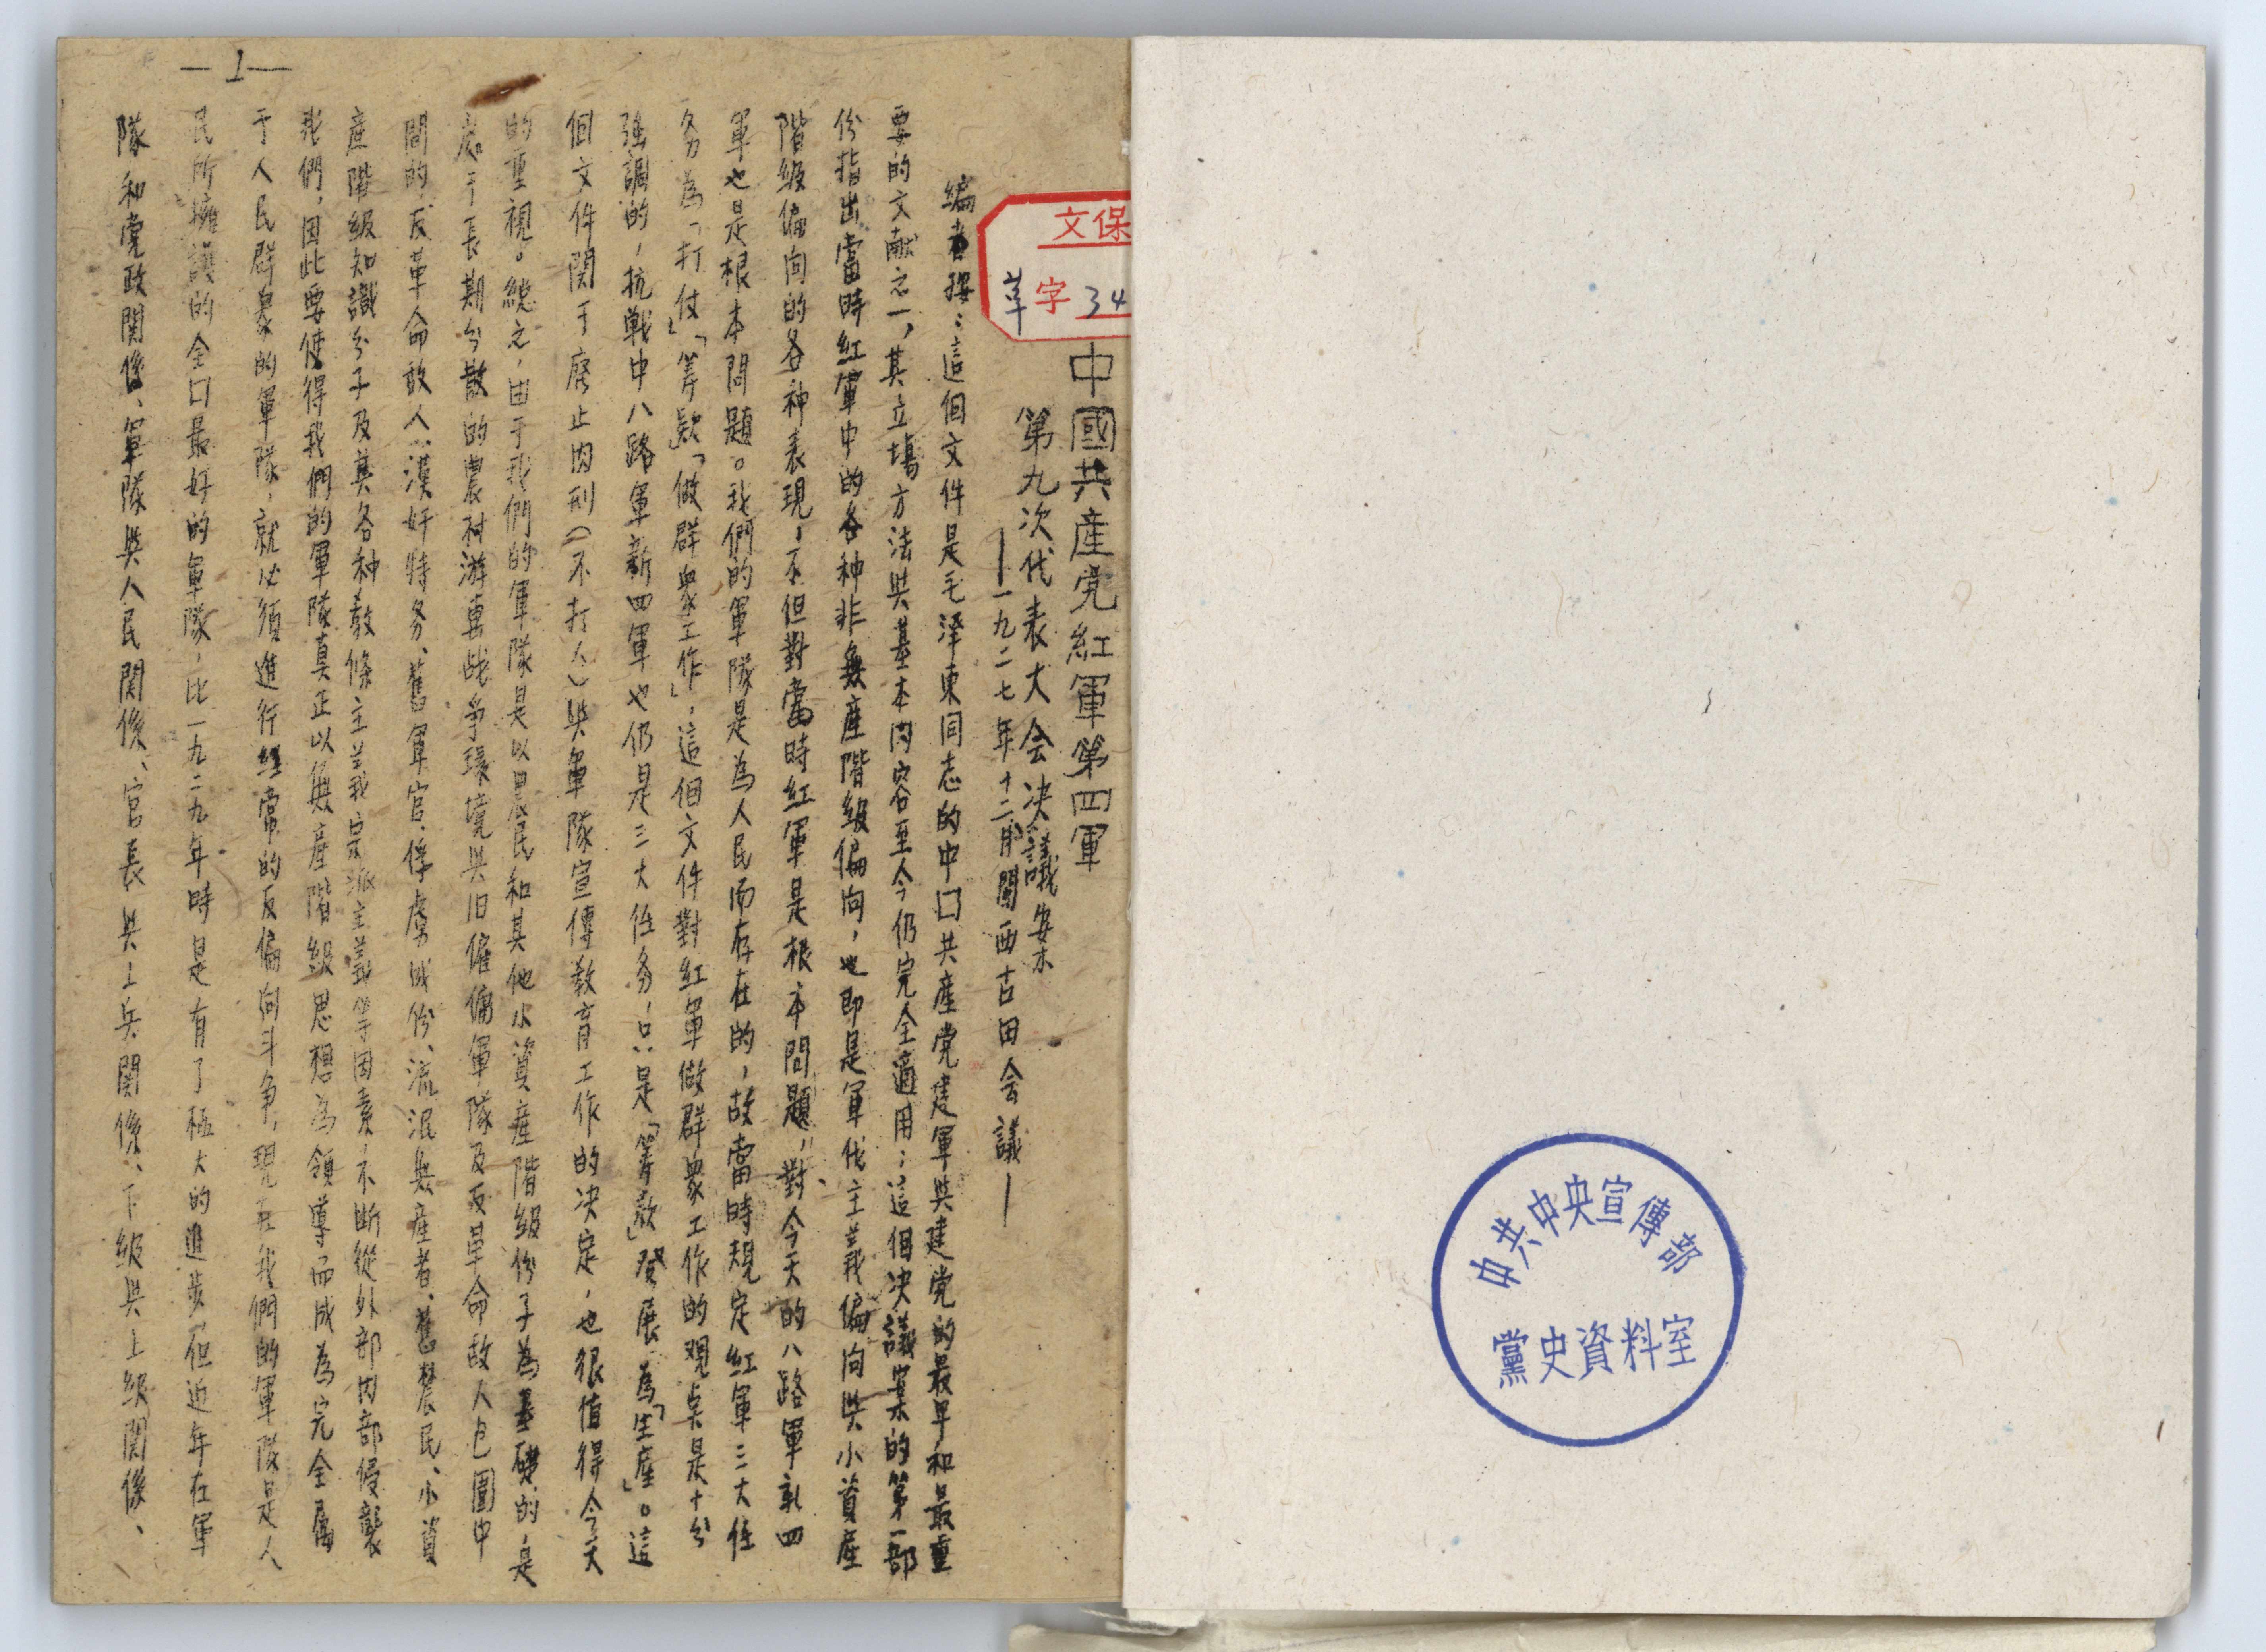 中共中央宣傳部
黨史資料室
文保
革字34
中國共產党紅軍第四軍
第九次代表大会决議案
——一九二七年十二月閩西古田会議——
編者按：這個文件是毛泽東同志的中口共產党建軍與建党的最早和最重
要的文献之一，其立場方法與基本內容至今仍完全適用；這個决議案的第一部
份指出當時紅軍中的各种非無產階級偏向，也即是軍伐主義偏向與小資產
階級偏向的各种表現，不但對當時紅軍是根本問題，對今天的八路軍新四
軍也是根本問題。我們的軍隊是為人民而存在的，故當時規定紅軍三大任
务為「打仗」「筹款」「做群眾工作」；這個文件對紅軍做群眾工作的观点是十分
強調的，抗戰中八路軍新四軍也仍是三大任务，只是「筹款」發展為「生產」。這
個文件関于廃止肉刑（不打人）與軍隊宣傳教育工作的决定，也很值得今天
的重視。總之，由于我們的軍隊是以農民和其他小資產階級份子為基礎的，是
處于長期分散的農村游擊战爭環境與旧僱傭軍隊及反革命敌人包圍中
間的，反革命敌人：漢奸特务、舊軍官、俘虜成份、流氓無產者、舊農民、小資
產階級知識分子及其各种教條主義宗派主義等因素，不断從外部內部侵襲
我們，因此要使得我們的軍隊真正以無產階級思想為領導而成為完全屬
于人民群眾的軍隊，就必須進行經常的反偏向斗争，現在我們的軍隊是人
民所擁護的全口最好的軍隊，比一九二九年時是有了極大的進步，但近年在軍
隊和党政関係、軍隊與人民関係、官長與士兵関係、下級與上級関係、
—1—